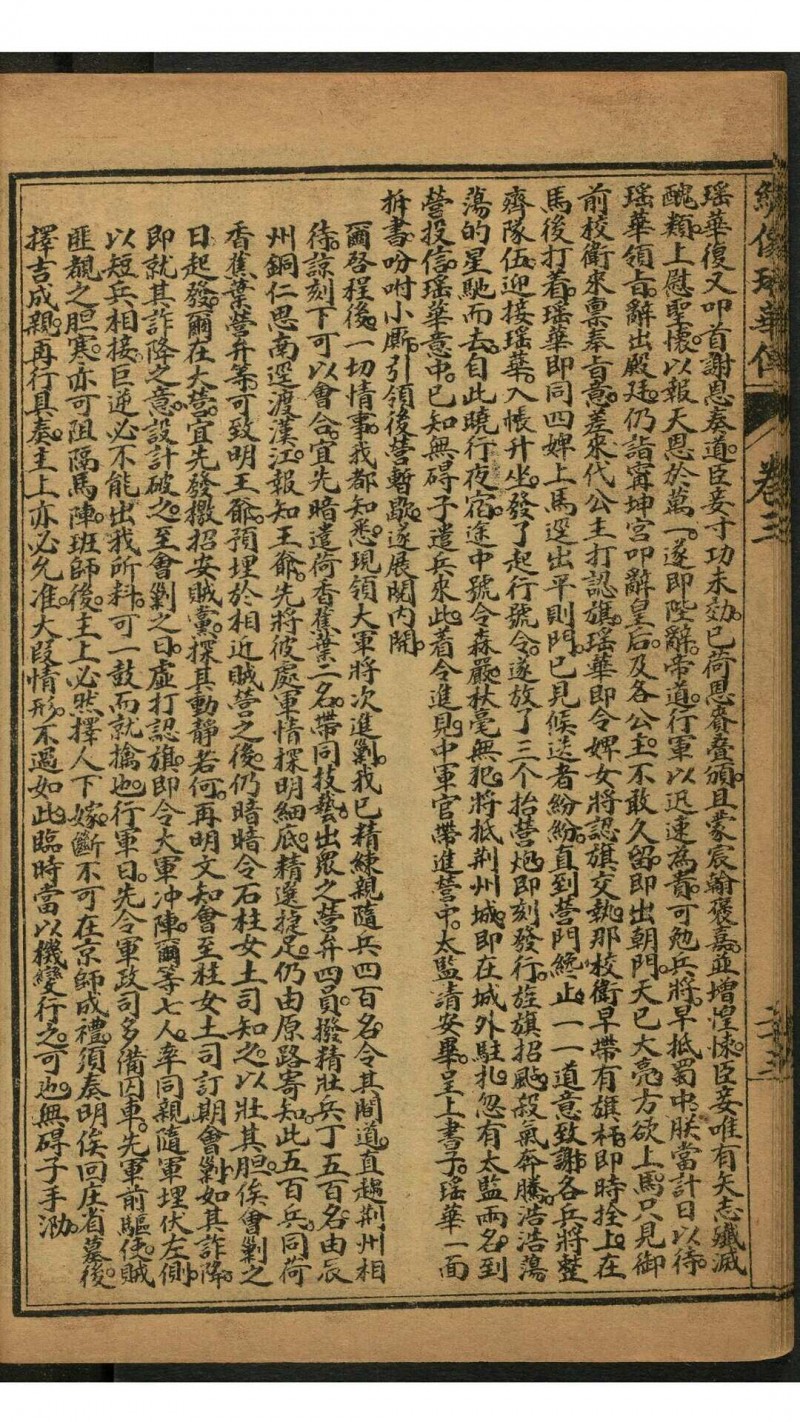 繡像瑤華傳 卷三 二十三
瑤華復又叩首謝恩奏道臣妾寸功未効已荷恩賚疊頒且蒙宸翰褒嘉並增惶悚臣妾唯有矢志殲滅
醜類上慰聖懷以報天恩於萬一遂即陛辭帝道行軍以迅速為貴可勉兵將早抵蜀中朕當計日以待
瑤華領旨辭出殿廷仍詣寗坤宮叩辭皇后及各公主不敢久留即出朝門天已大亮方欲上馬只見御
前校衛來禀奉旨意差來代公主打認旗瑤華即令婢女將認旗交執那校衛早帶有旗杆即時拴上在
馬後打着瑤華即同四婢上馬逕出平則門已見候送者紛紛直到營門纔止一一道意致謝各兵將整
齊隊伍迎接瑤華入帳升坐發了起行號令遂放了三个抬營炮即刻發行旌旗招颭殺氣奔騰浩浩蕩
蕩的星馳而去自此曉行夜宿途中號令森嚴秋毫無犯將抵荆州城即在城外駐扎忽有太監兩名到
營投信瑤華意中已知無碍子遣兵來此着令進見中軍官帶進營中太監請安畢呈上書子瑤華一面
拆書吩咐小廝引領後營暫歇遂展閱內開
爾啓程後一切情事我都知悉現領大軍將次進剿我已精練親隨兵四百名令其間道直趨荆州相
待諒刻下可以會合宜先暗遣荷香蕉葉二名帶同技藝出眾之營弁四員撥精壯兵丁五百名由辰
州銅仁思南逕渡漢江報知王爺先將彼處軍情探明細底精選捷足仍由原路寄知此五百兵同荷
香蕉葉營弁等可致明王爺預埋於相近賊營之後仍暗暗令石柱女土司知之以壯其胆俟會剿之
日起發爾在大營宜先發檄招安賊黨探其動靜若何再明文知會至柱女土司訂期會剿如其詐降
即就其詐降之意設計破之至會剿之日虛打認旗即令大軍冲陣爾等七人率同親隨軍埋伏左側
以短兵相接巨逆必不能出我所料可一鼓而就擒也行軍日先令軍政司多備囚車先軍前驅使賊
匪覩之胆寒亦可阻隔馬陣班師後主上必然擇人下嫁斷不可在京師成禮須奏明俟回庄省墓後
擇吉成親再行具奏主上亦必允准大叚情形不過如此臨時當以機變行之可也無碍子手泐